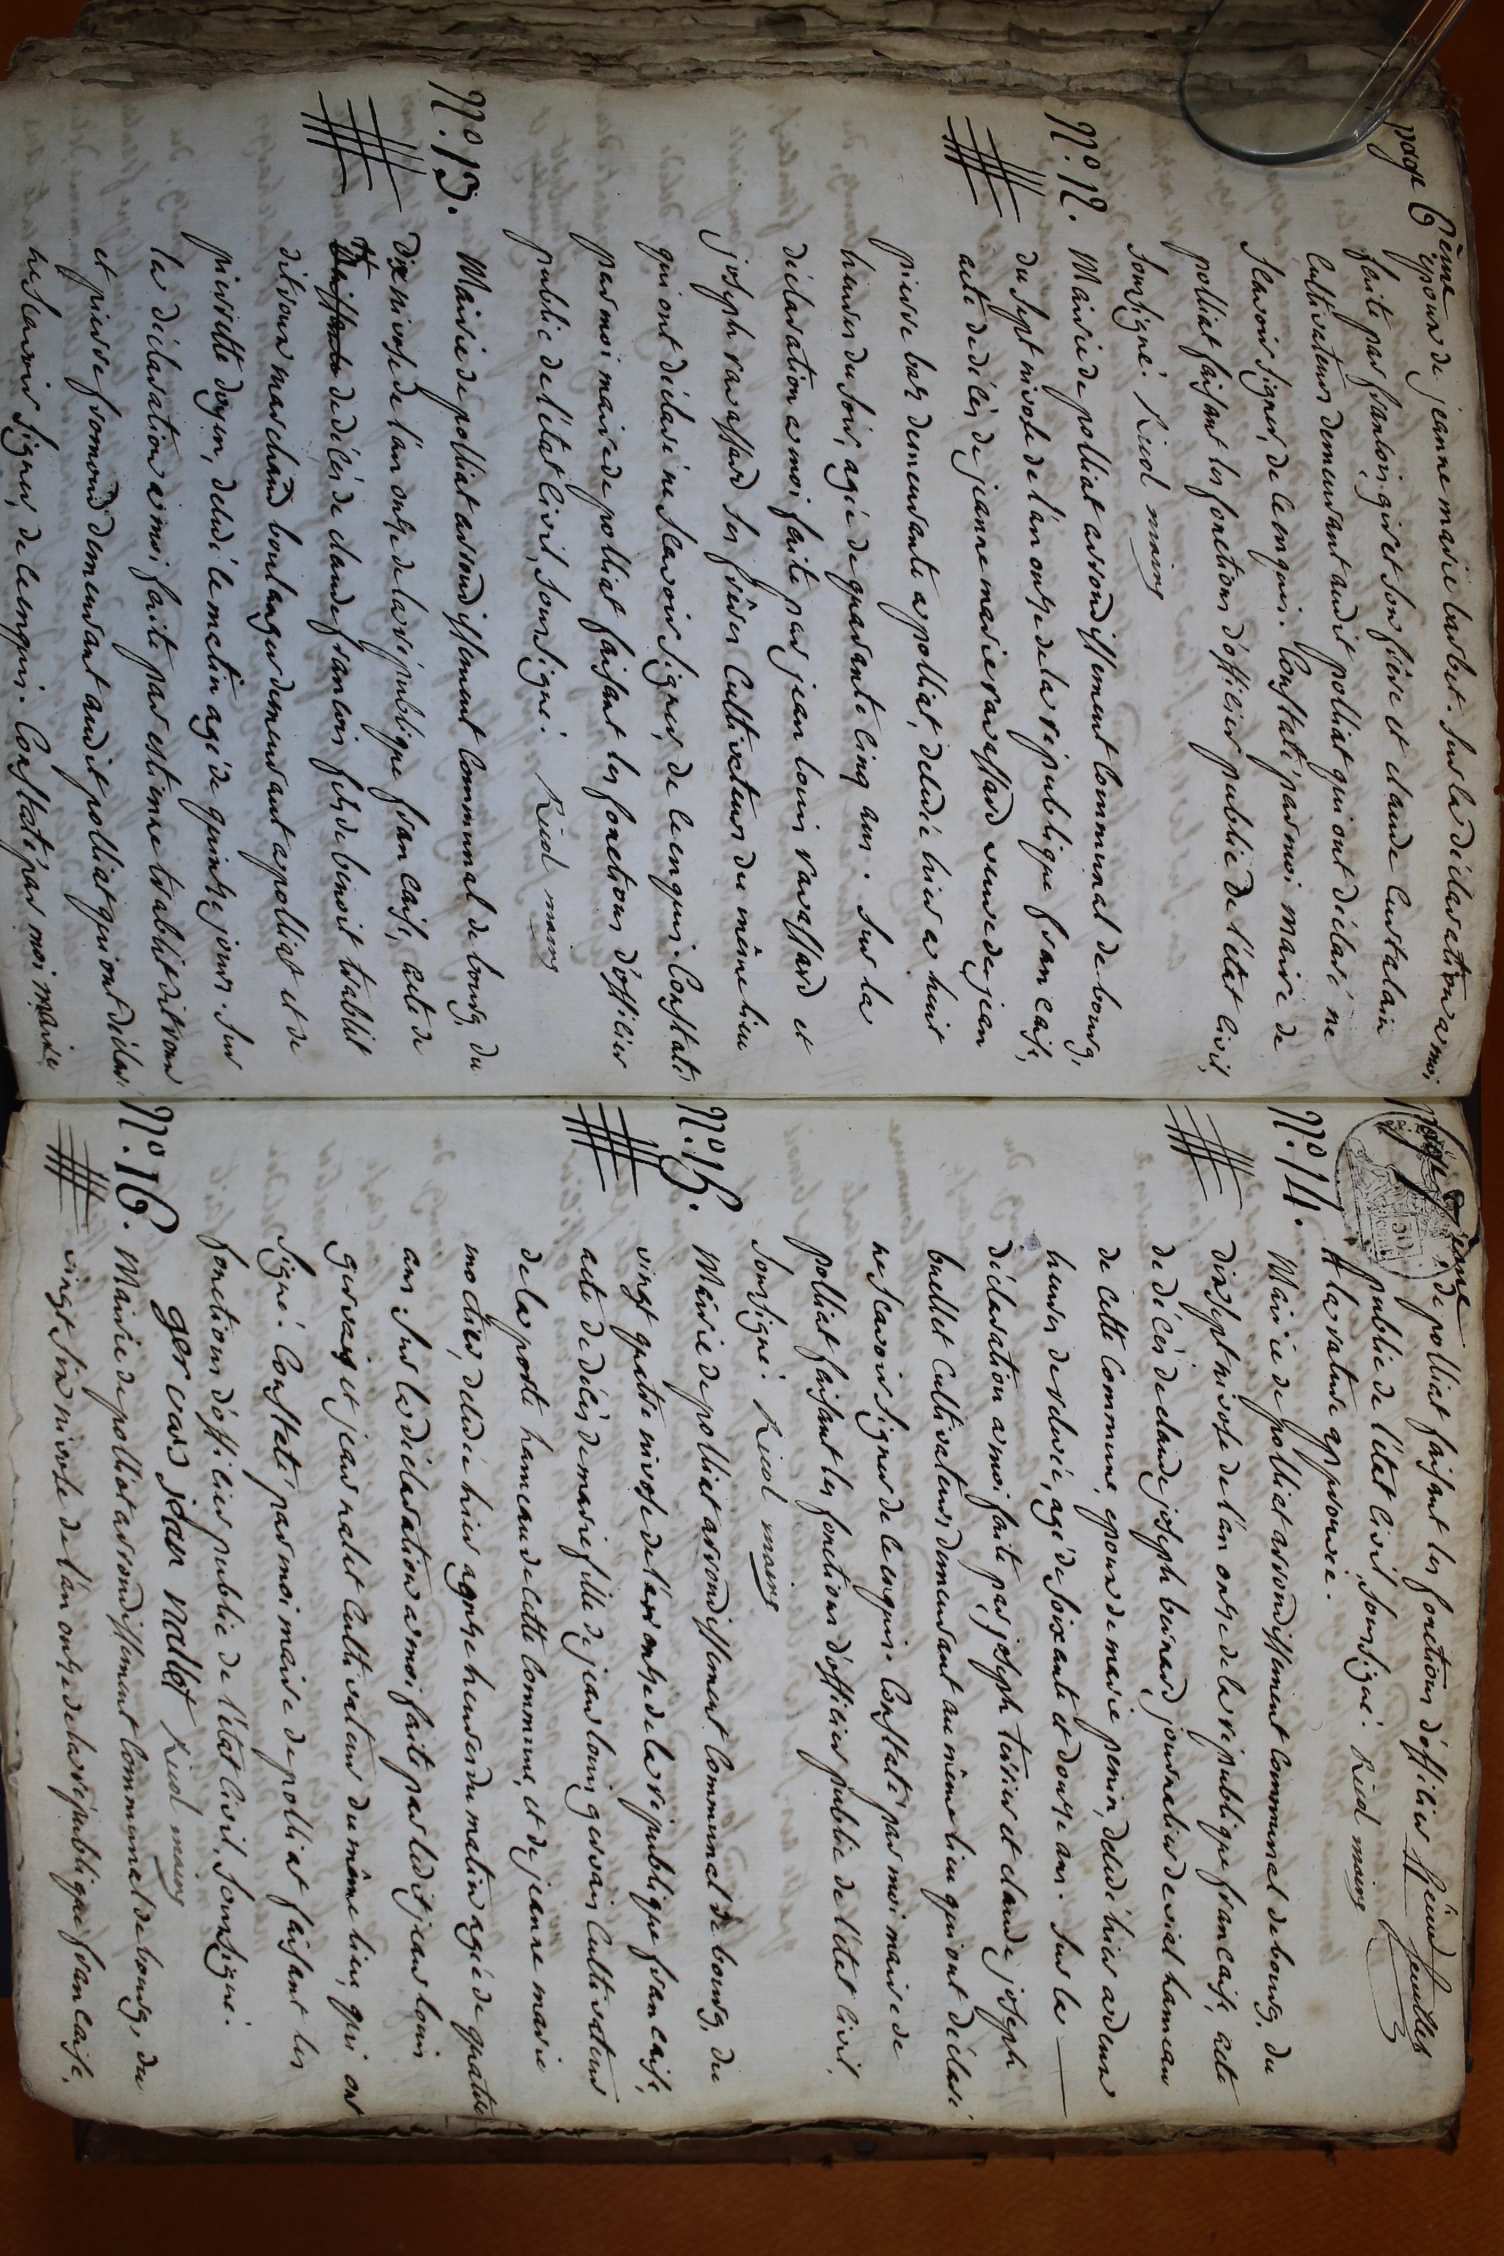 page 6ème
epoux de jeanne marie barbet. Sur la déclaration a moi
faite par françois givet son frère et claude Curtalain
Cultivateurs demeurant audit polliat qui ont déclaré ne
scavoir signer, de ce enquis. Constaté par moi maire de
polliat faisant les fonctions d'officier public de l'état civil,
soussigné. Ricol maire
N.o 12.
Mairie de polliat arrondissement Communal de bourg,
du sept nivose de l'an onze de la république francaise,
acte de décès de jeanne marie ravassard veuve de jean
pierre bas demeurante a polliat, décédée hier a huit
heures du soir, agée de quarante cinq ans. Sur la
déclaration a moi faite par jean louis ravassard et
joseph ravassard ses frères Cultivateurs du même lieu
qui ont déclaré ne scavoir signer, de ce enquis. Constaté
par moi maire de polliat faisant les fonctions d'officier
public de l'état Civil, soussigné. Ricol maire
N.o 13.
Mairie de polliat arrondissement Communal de bourg, du
dix nivose de l'an onze de la république francaise, acte de
de décès de claude francois fils de benoit trablit
dit rour marchand boulanger demeurant a polliat et de
pierrette doyen, décédé le matin agé de quinze jours. Sur
la déclaration a moi faite par estienne trablit dit rour
et pierre fromond demeurant audit polliat qui ont déclaré
ne scavoir signer, de ce enquis. Constaté par moi maire
page 7ème
de polliat faisant les fonctions d'officier
public de l'état Civil, soussigné. Ricol maire
la rature approuvée.
N.o 14.
Mairie de polliat arrondissement Communal de bourg, du
dix sept nivose de l'an onze de la république francaise, acte
de décès de claude joseph buirard journalier de viel hameau
de cette Commune, epoux de marie perrin, décédé hier a deux
heures de relevée, agé de soixante et douze ans. Sur la
déclaration a moi faite par joseph tissier et claude joseph
buellet Cultivateurs demeurant au même lieu qui ont déclaré
ne scavoir signer de ce enquis. Constaté par moi maire de
polliat faisant les fonctions d'officier public de l'état civil,
soussigné. Ricol maire
N.o 15.
Mairie de polliat arrondissement Communal de bourg, du
vingt quatre nivose de l'an onze de la république francaise,
acte de décès de marie fille de jean louis gervais Cultivateur
de la porte hameau de cette Commune, et de jeanne marie
, décédée hier a onze heures du matin agée de quatre
ans. Sur la déclaration a moi faite par ledit jean louis
gervais et jean nallet Cultivateur du même lieu, qui ont
signé. Constaté par moi maire de polliat faisant les
fonctions d'officier public de l'état Civil, soussigné.
gervais jean nallet Ricol maire
N.o 16.
Mairie de polliat arrondissement Communal de bourg, du
vingt six nivose de l'an onze de la république francaise,